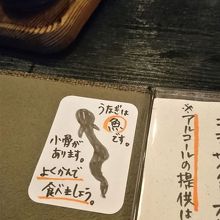 うなぎは
魚です。
小骨が
あります。
よくかんで
食べましょう。
※アルコールの提供は